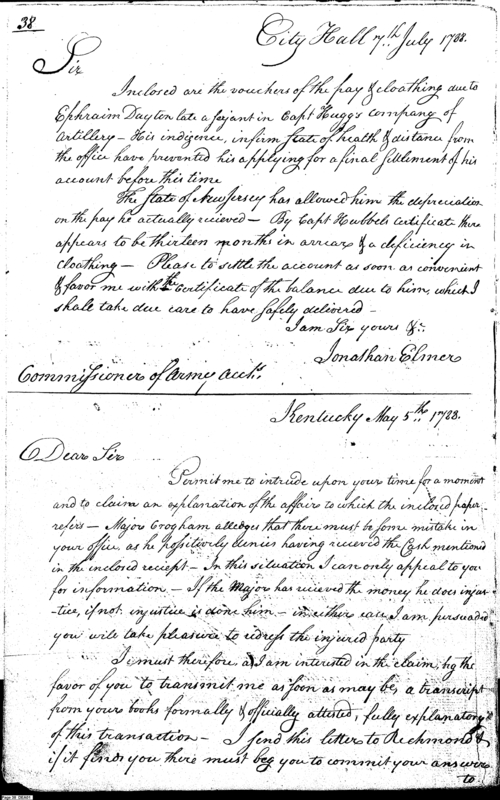 38
City Hall 7th July 1788.
Sir
Inclosed are the vouchers of the pay & cloathing due to
Ephraim Dayton late a serjant in Capt Huggs company of
Artillery – His indigence, infirm state of health & distance from
the office have prevented his applying for a final settlement of his
account before this time
The State of New Jersey has allowed him the depreciation
on the pay he actually recieved – By Capt Hubbels certificate there
appears to be thirteen months in arrears & a deficiency in
cloathing – Please to settle the account as soon as convenient
& favor me with the certificate of the balance due to him, which I
shall take due care to have safely delivered –
I am Sir yours &c
Jonathan Elmer
Commissioner of Army Accts.
Kentucky May 5th 1788.
Dear Sir
Permit me to intrude upon your time for a moment
and to claim an explanation of the affair to which the inclosed paper
refers – Major Crogham alledges that there must be some mistake in
your office, as he possitively denies having recieved the Cash mentioned
in the inclosed reciept – In this situation I can only appeal to you
for information – If the Major has recieved the money he does injus-
-tice, if not, injustice is done him – in either case I am persuaded
you will take pleasure to redress the injured party
I must therefore, as I am interested in the claim, beg the
favor of you to transmit me as soon as may be, a transcript
from your books formally & officially attested, fully explanatory
of this transaction – I send this letter to Richmond &
if it finds you there must beg you to commit your answer
to